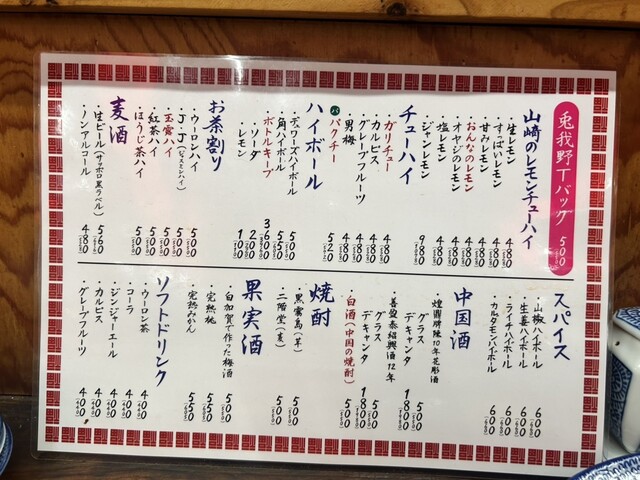 兎我野Tバッグ 500
山崎のレモンチューハイ
・生レモン 480
・すっぱいレモン 480
・甘みレモン 480
・おんなのレモン 480
・オヤジのレモン 480
・塩レモン 480
・ジャンレモン 980
チューハイ
・ガリチュー 480
・カルピス 480
・グレープフルーツ 480
・男梅 480
パクチー 520
ハイボール
・デュワーズハイボール 500
・角ハイボール 550
・ボトルキープ 3600
・ソーダ 200
・レモン 100
お茶割り
・ウーロンハイ 500
・JJ(ジャスミンハイ) 500
・玉露ハイ 500
・紅茶ハイ 500
・ほうじ茶ハイ 500
麦酒
・生ビール(サッポロ黒ラベル) 560
・ノンアルコール 480
スパイス
・山椒ハイボール 600
・生姜ハイボール 600
・ライチハイボール 600
・カルダモンハイボール 600
中国酒
10年花彫酒
グラス 500
デキャンタ 1800
・善醸泰紹興酒12年
グラス 500
デキャンタ 1800
・白酒(中国の焼酎) 500
焼酎
・黒霧島(芋) 500
・二階堂(麦) 500
果実酒
・白加賀で作った梅酒 500
・完熟桃 550
・完熟みかん 550
ソフトドリンク
・ウーロン茶 400
・コーラ 400
・ジンジャーエール 400
・カルピス 400
・グレープフルーツ 400